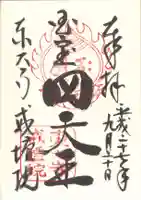 奉拝
平成二十七年
九月二十日
国宝
四天王
東大寺 戒壇院